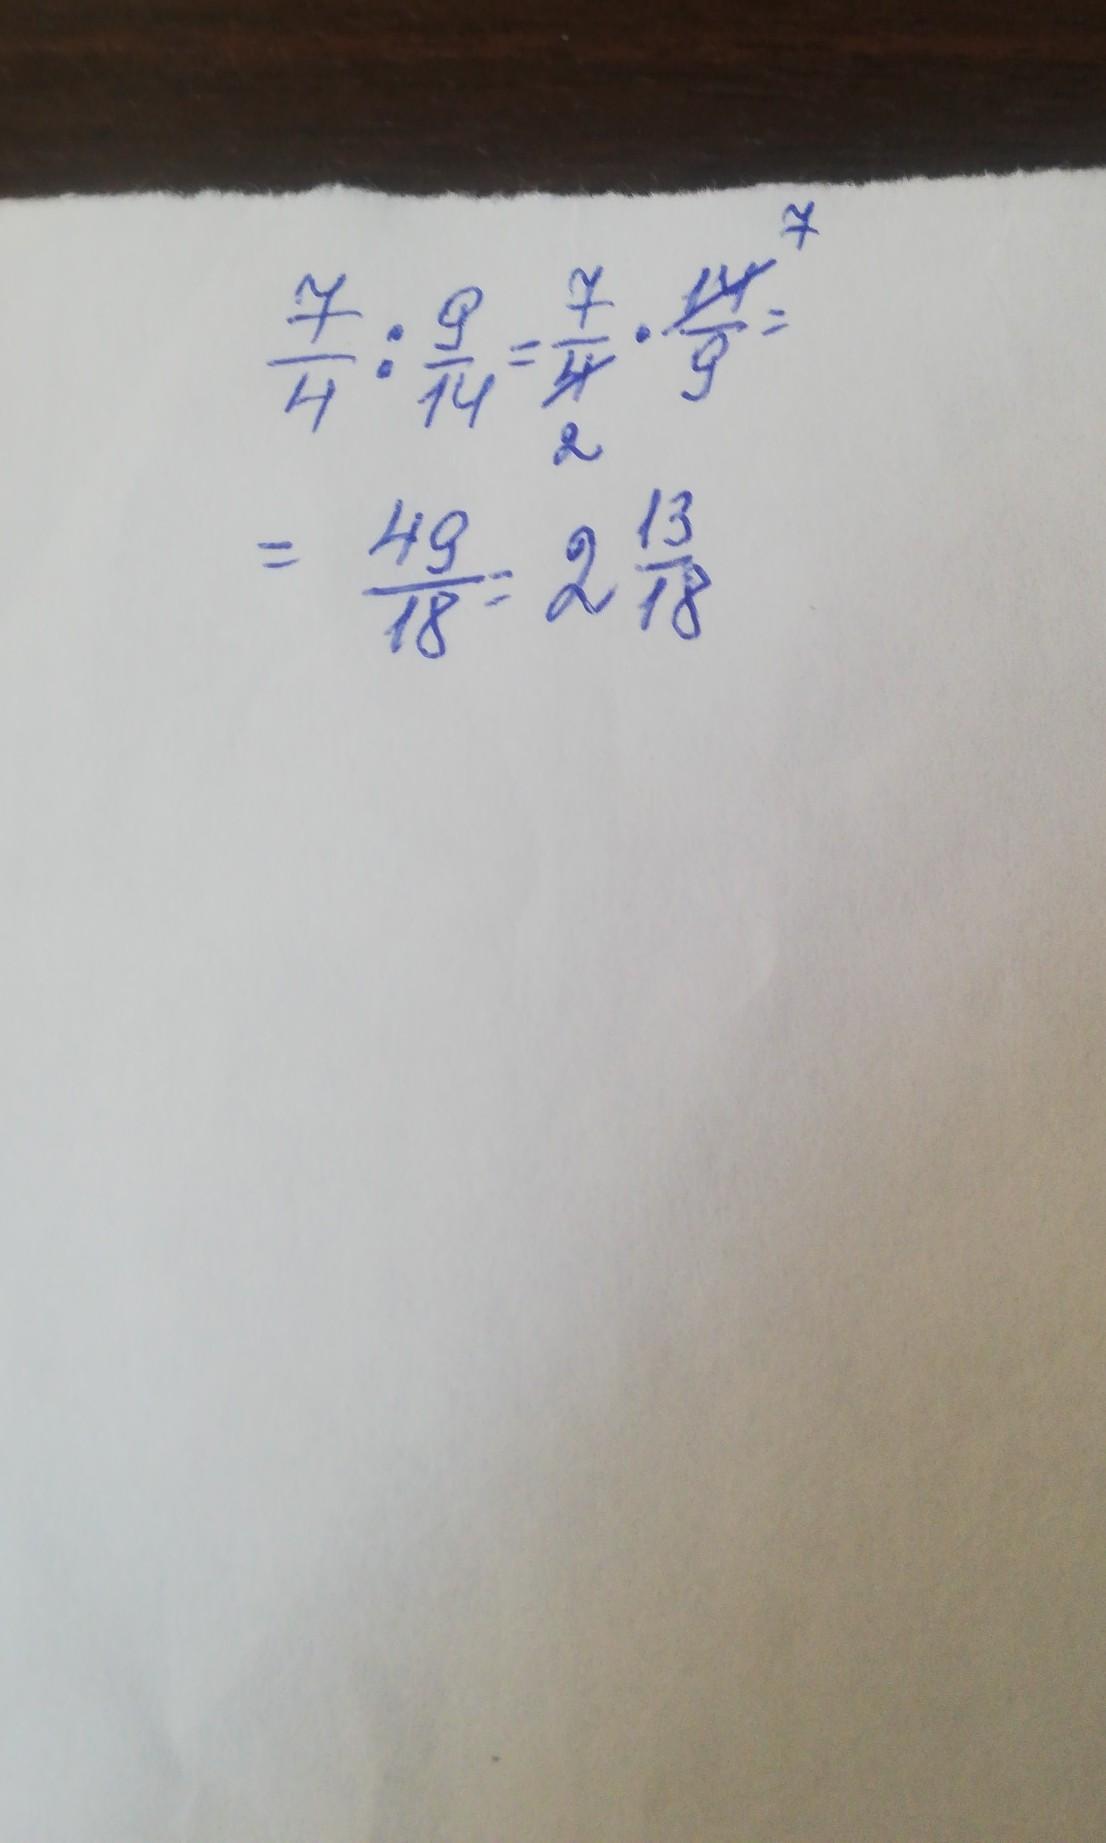 7/4 : 9/14 = 7/4 2 · 14/9 7 =
= 49/18 = 2 13/18